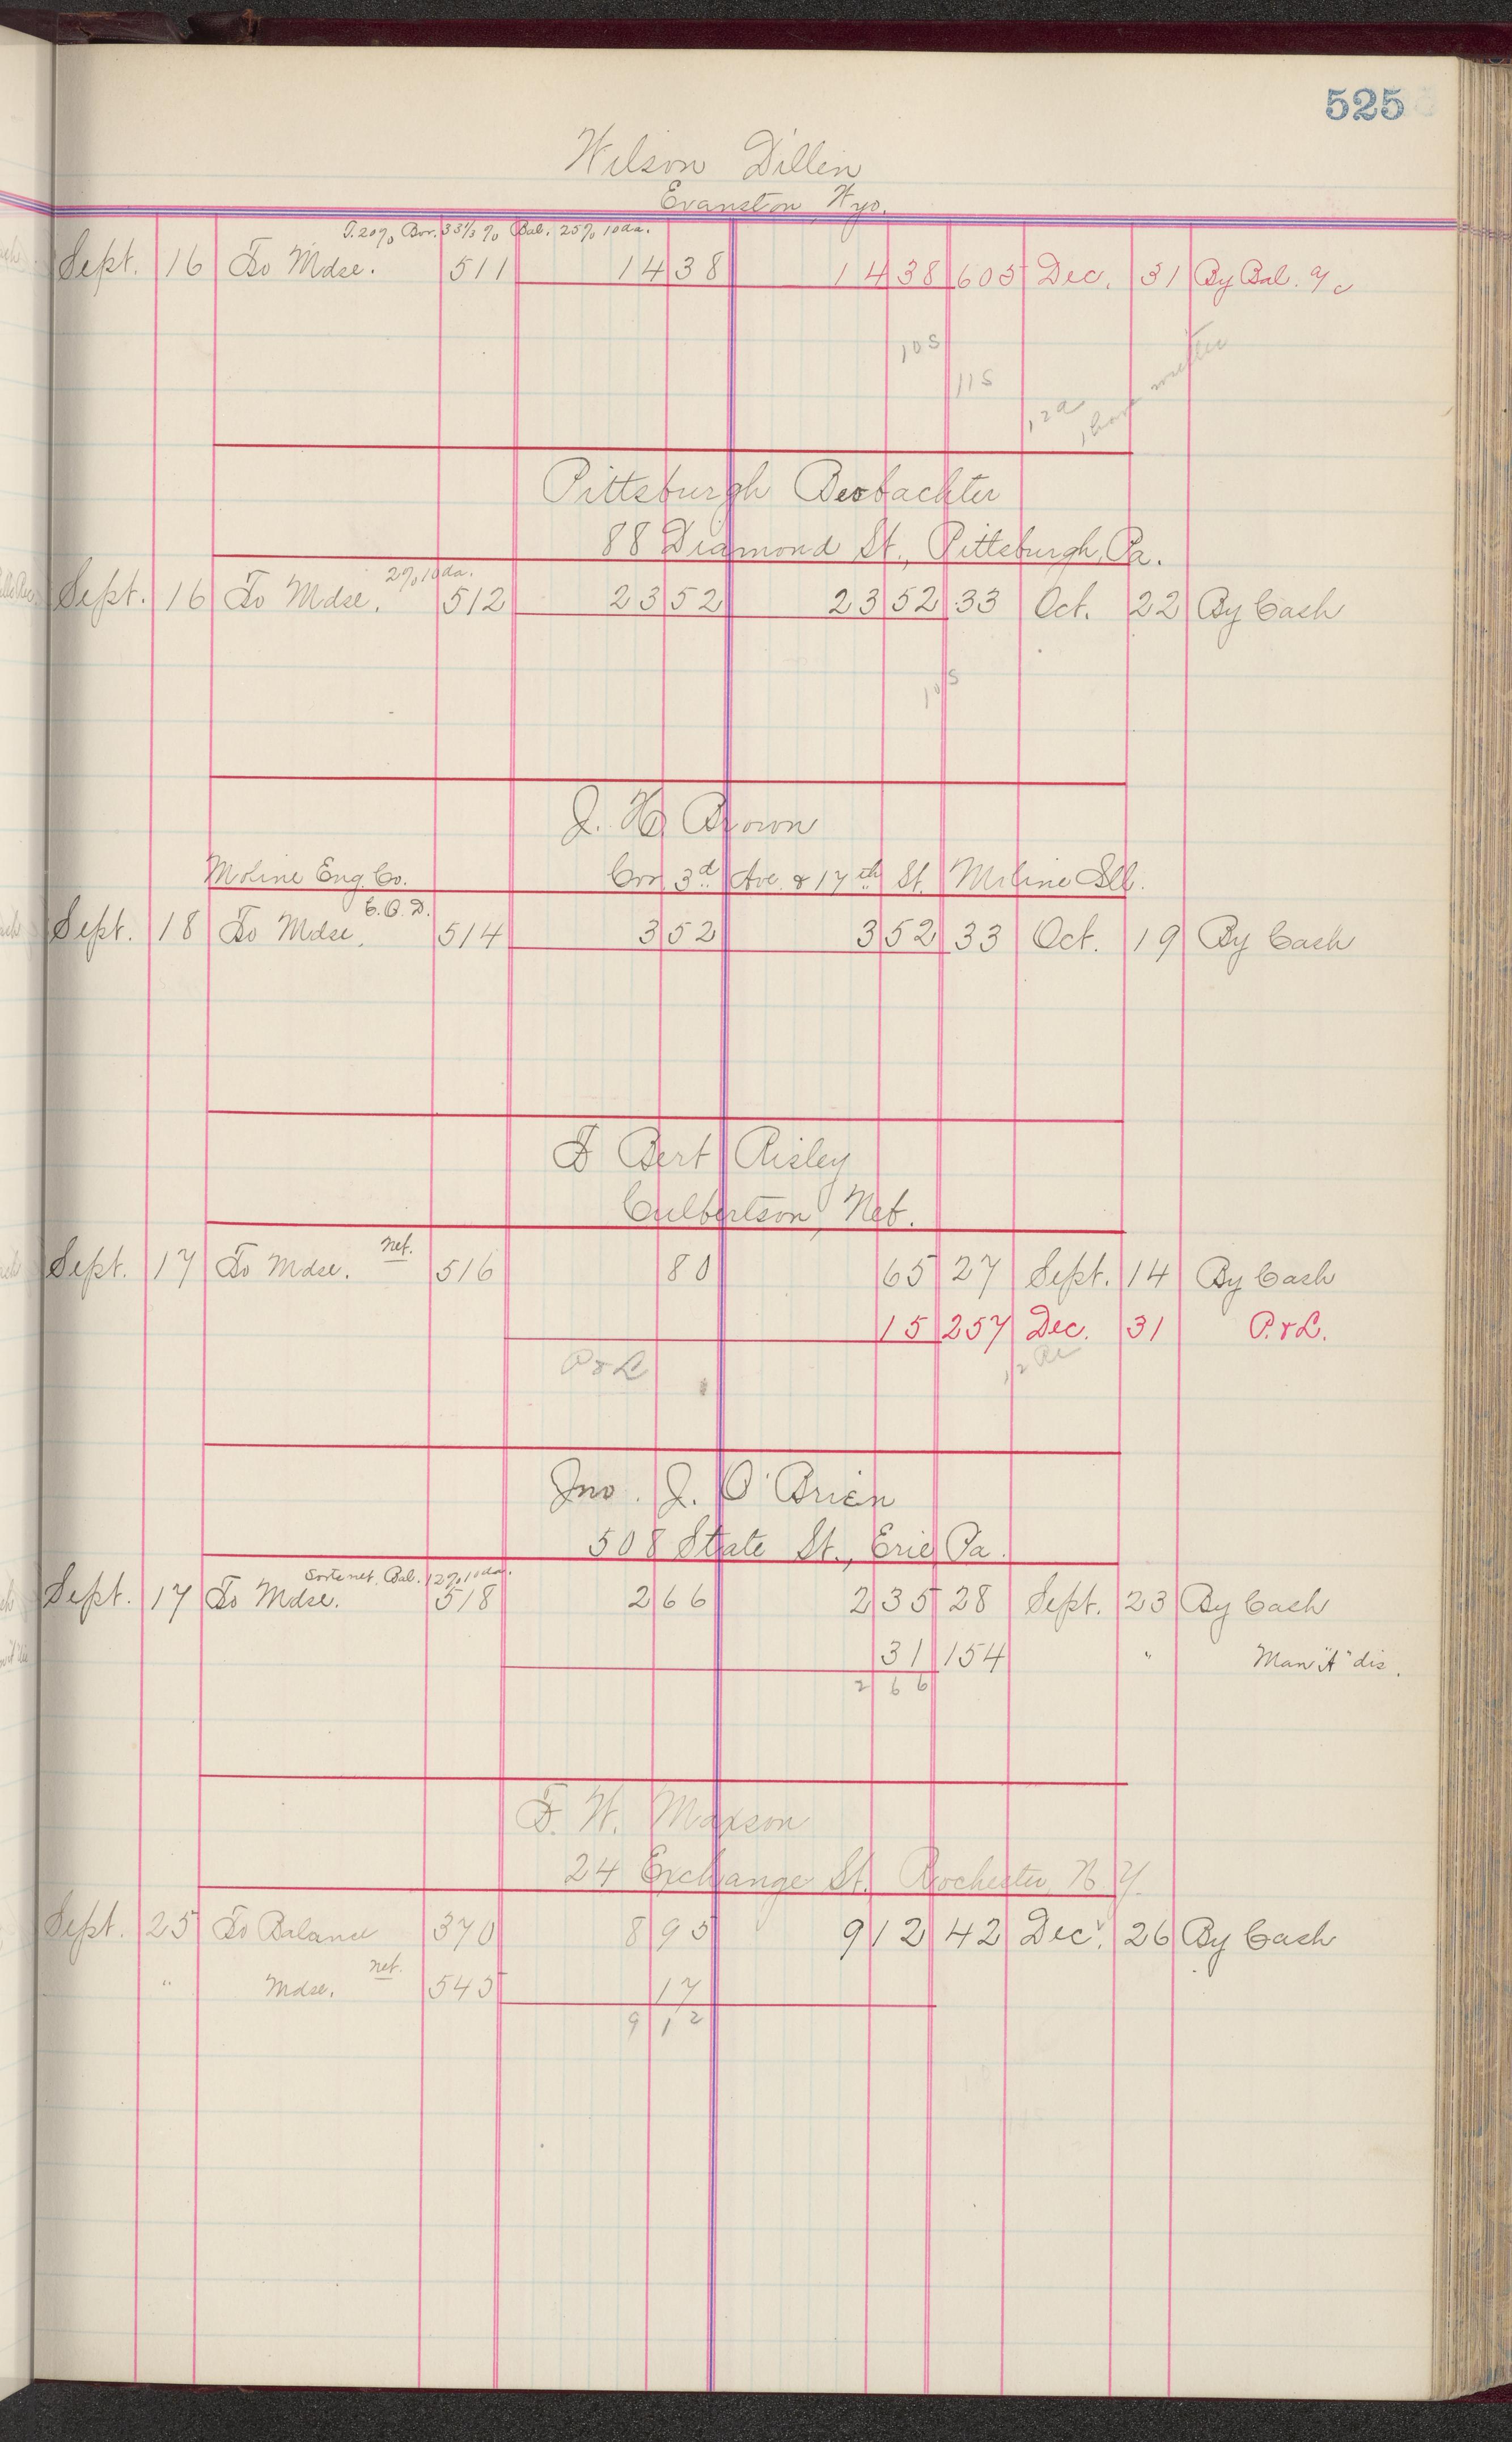 525
Wilson Dillin
Evanston, Wyo.
T. 20% Bor. 33⅓% Bal. 25% 10 da.
Sept. 16 To Mdse. 511 14 38 14 38 605 Dec. 31 By Bal. a/c
10 s
11 s
12 a
Pittsburgh Beobachter
88 Diamond St., Pittsburgh, Pa.
2% 10 da.
Sept. 16 To Mdse. 512 23 52 23 52 33 Oct. 22 By Cash
10 s
J. H. Brown
Moline Eng. Co. Cor. 3d Ave. & 17th St. Moline Ill.
C.O.D.
Sept. 18 To Mdse. 514 3 52 3 52 33 Oct. 19 By Cash
F Bert Risley
Culbertson, Neb.
net.
Sept. 17 To Mdse. 516 80 65 27 Sept. 14 By Cash
15 257 Dec. 31 P. & L.
P & L
Jno. J. O'Brien
508 State St., Erie Pa.
Sorts net, Bal. 12% 10 da.
Sept. 17 To Mdse. 518 2 66 2 35 28 Sept. 23 By Cash
31 154 " Man "A" dis.
2 66
F. W. Maxson
24 Exchange St. Rochester, N.Y.
Sept. 25 To Balance 370 8 95 9 12 42 Dec. 26 By Cash
" Mdse. net. 545 17
9 12